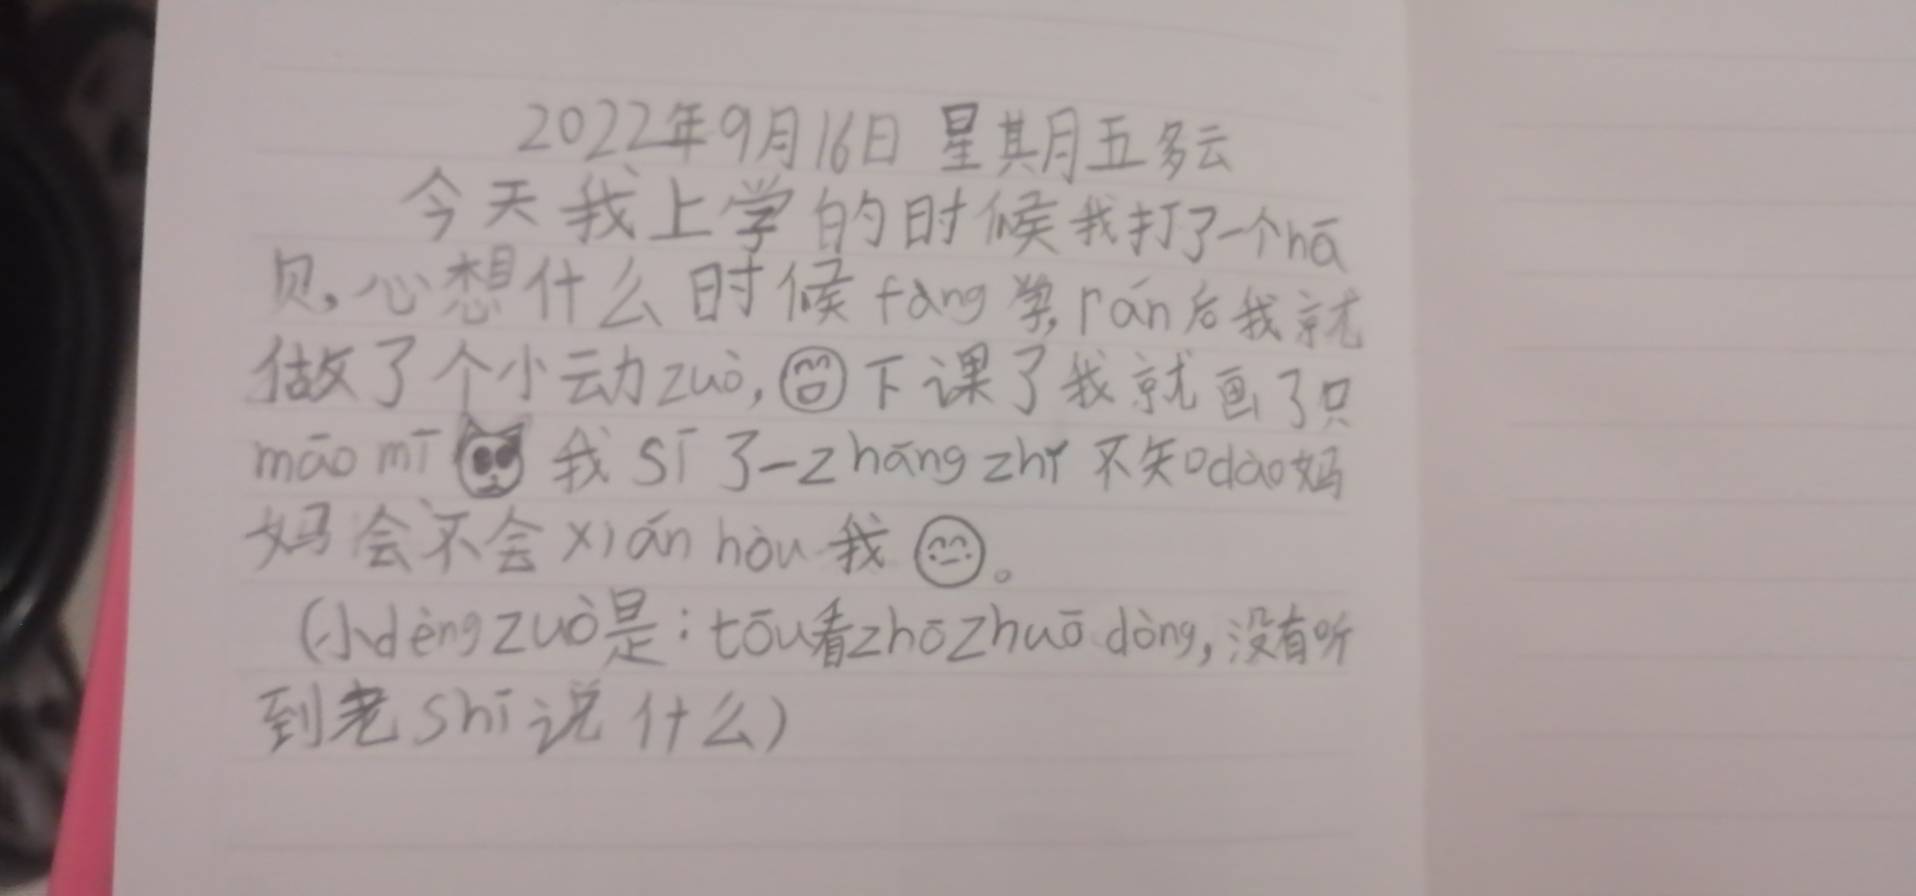 2022年9月16日 星其月五多云
今天我上学的时候我打了一个hā
贝,心想什么时候fàng学,rán后我就
做了个小动zuò,下课了我就画了只
māo mī 我sī了一zhāng zhǐ 不知dào妈
妈会不会xián hòu我。
(小dèng zuò是:tōu看zhōzhuō dòng,没有听
到老shī说什么)